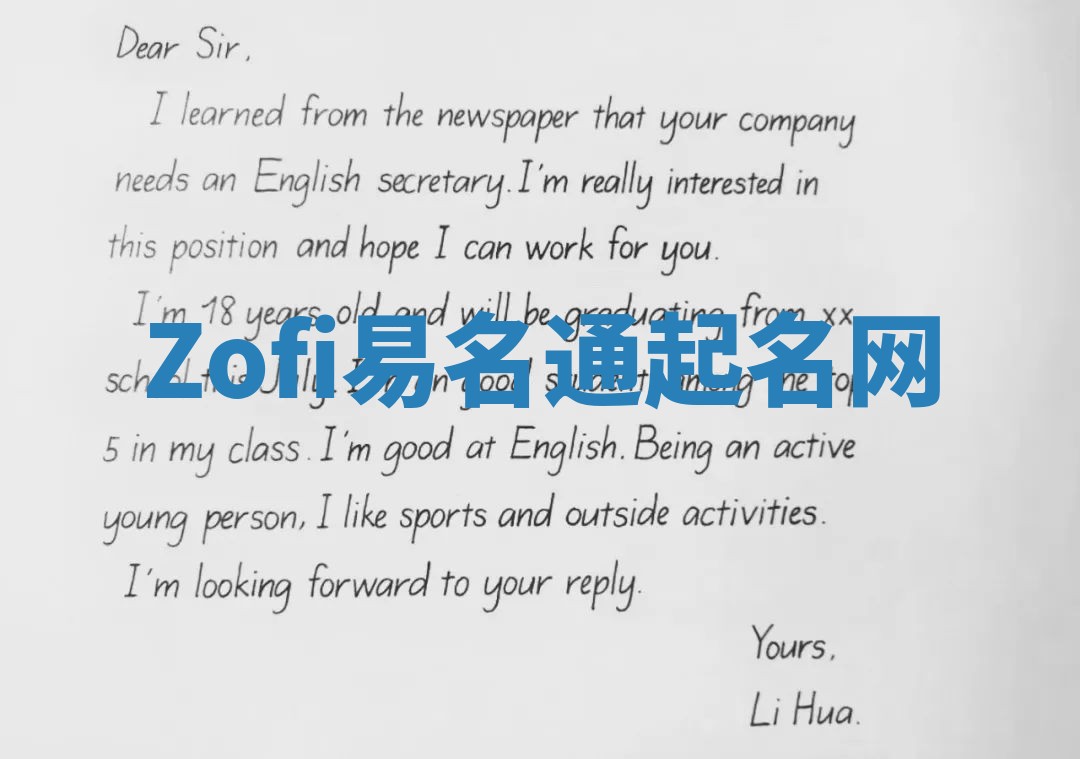 Dear Sir,
I learned from the newspaper that your company
needs an English secretary. I'm really interested in
this position and hope I can work for you.
I'm 18 years old and will be graduating from xx
Zofi易名通起名网
school this July. I'm good student among the top
5 in my class. I'm good at English. Being an active
young person, I like sports and outside activities.
I'm looking forward to your reply.
Yours,
Li Hua.